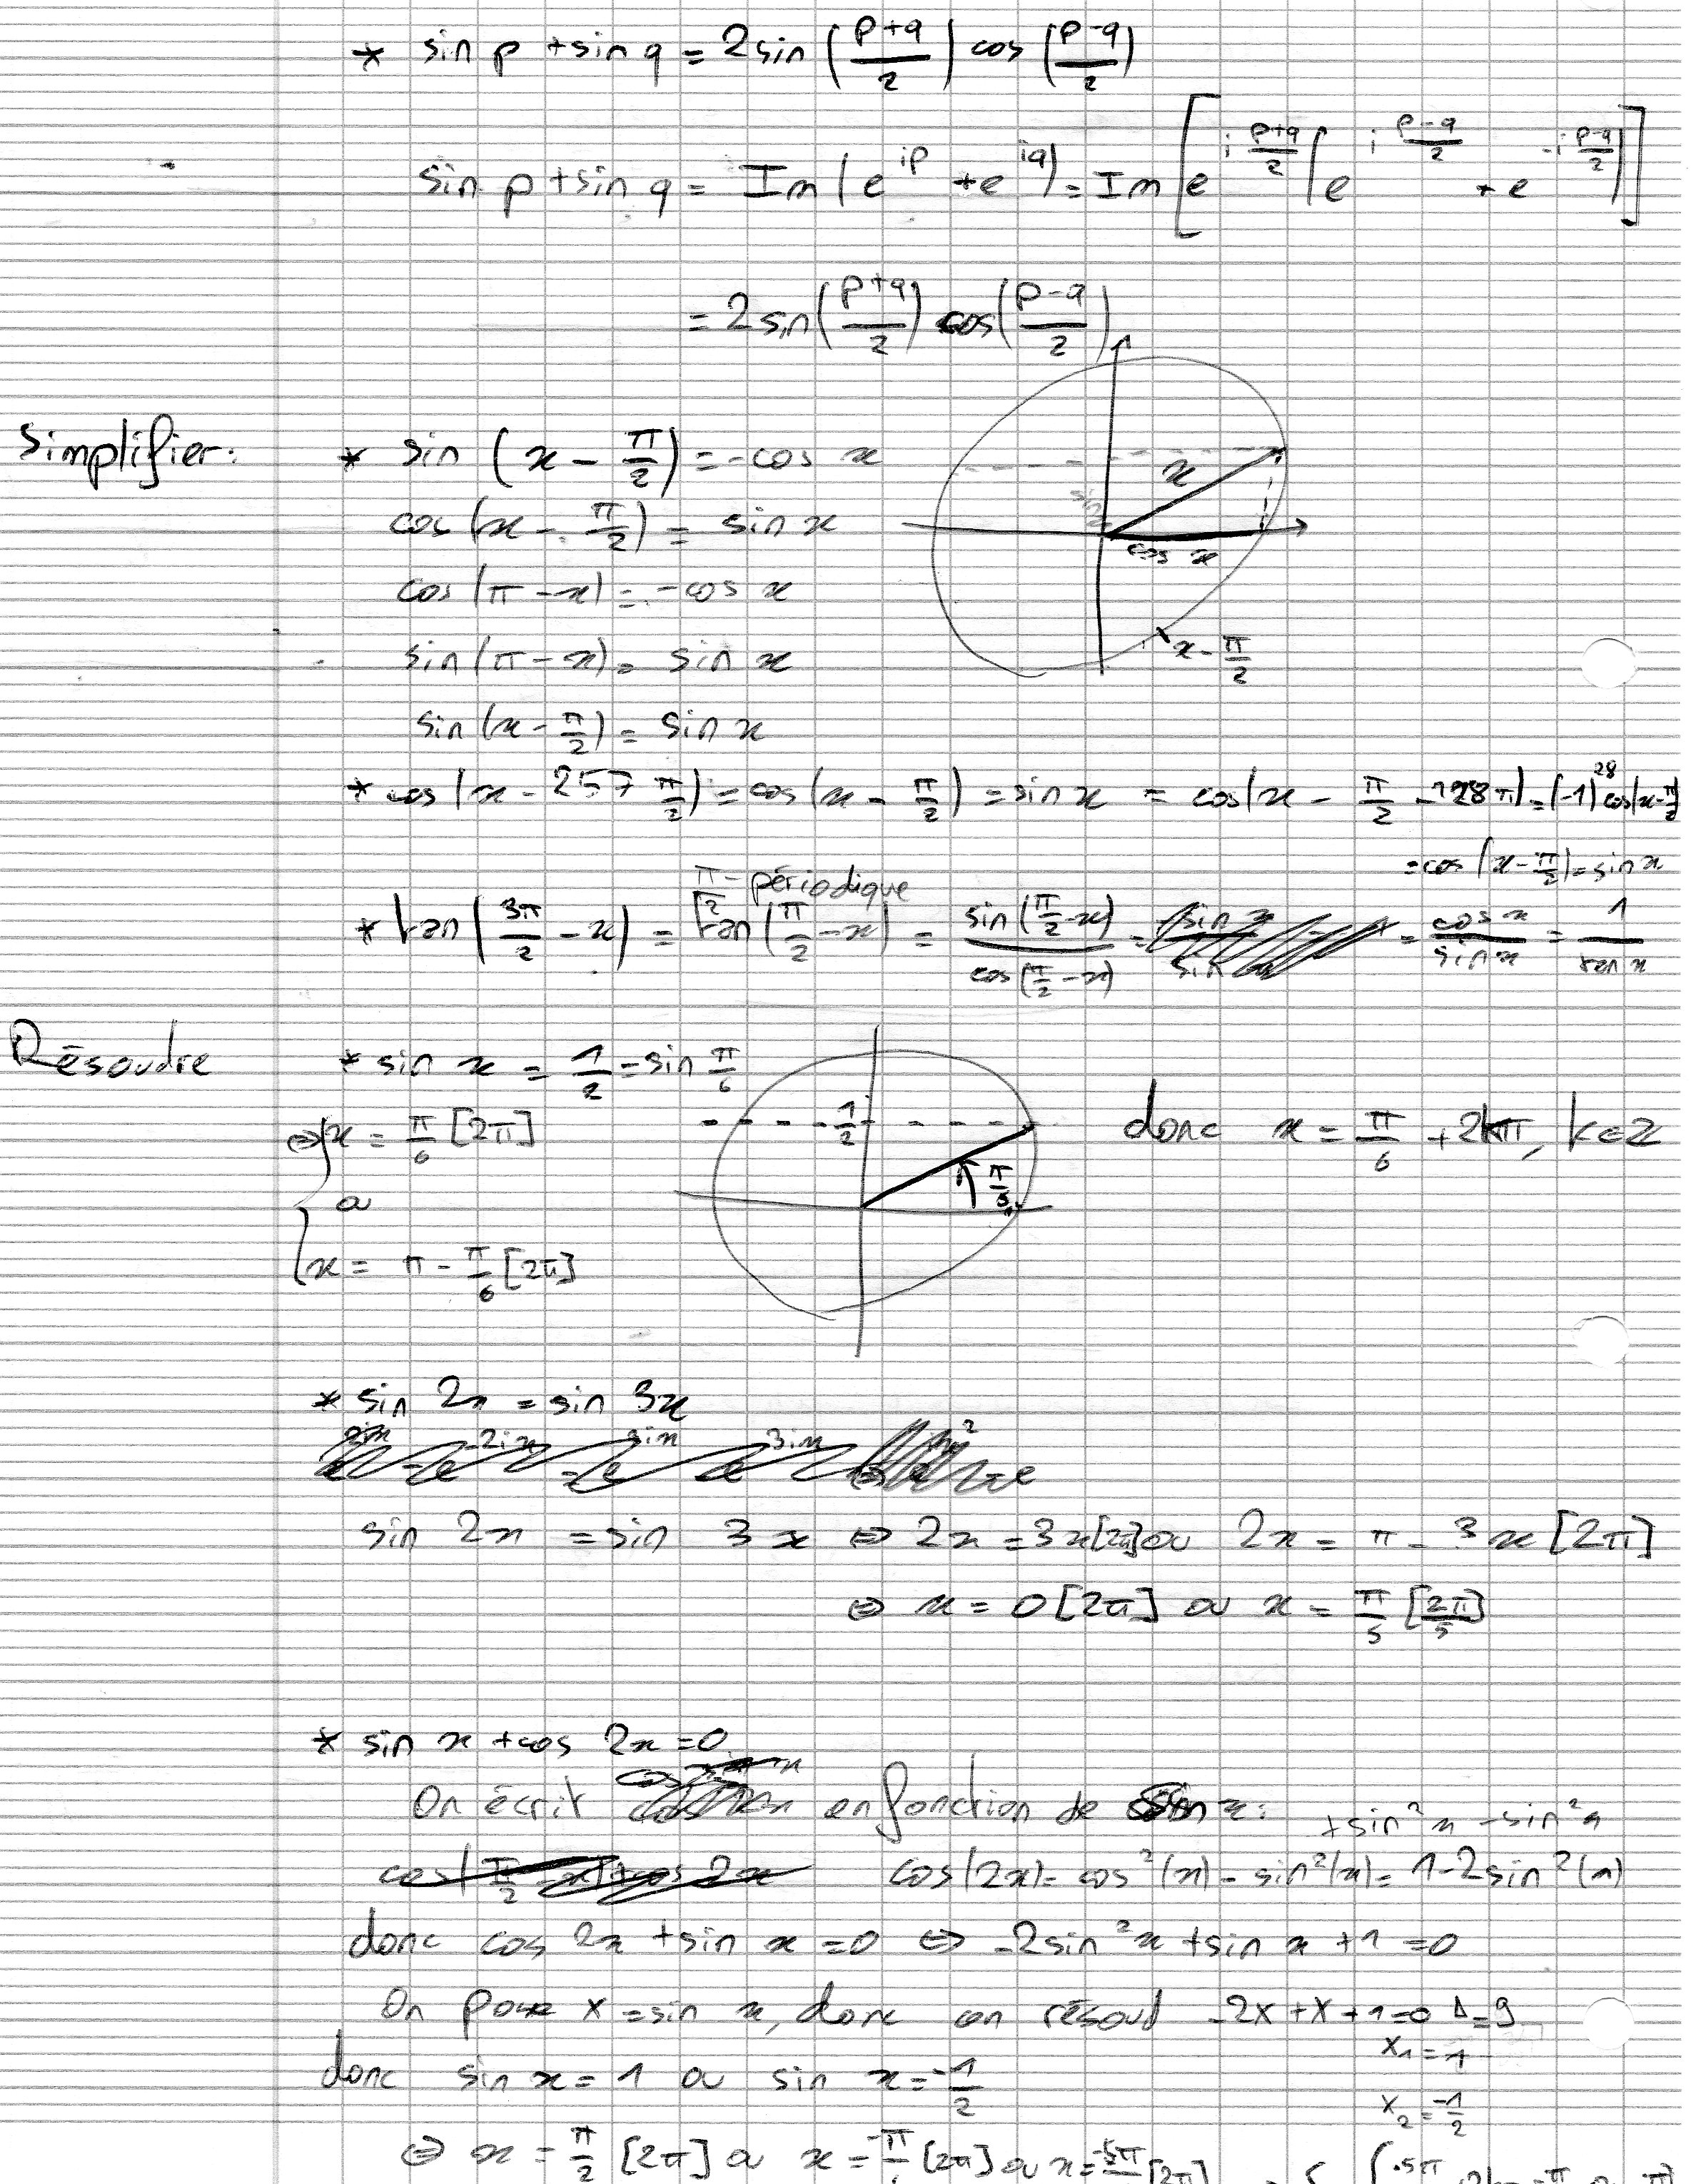 * sin p + sin q = 2 sin ((p+q)/2) cos ((p-q)/2)
sin p + sin q = Im (e^{ip} + e^{iq}) = Im [e^{i (p+q)/2} (e^{i (p-q)/2} + e^{-i (p-q)/2})]
= 2 sin ((p+q)/2) cos ((p-q)/2)
Simplifier: * sin (x - π/2) = -cos x
x
sin x
cos x
x - π/2
cos (x - π/2) = sin x
cos (π - x) = -cos x
sin (π - x) = sin x
sin (x - π/2) = sin x
* cos (x - 257 π/2) = cos (x - π/2) = sin x = cos (x - π/2 - 128π) = (-1)^{28} cos (x - π/2)
= cos (x - π/2) = sin x
π-périodique
* tan (3π/2 - x) = tan (π/2 - x) = sin (π/2 - x) / cos (π/2 - x) = cos x / sin x = 1 / tan x
Résoudre * sin x = 1/2 = sin π/6
⇔ { x = π/6 [2π]
ou
x = π - π/6 [2π]
1/2
donc x = π/6 + 2kπ, k∈Z
* sin 2x = sin 3x
sin 2x = sin 3x ⇔ 2x = 3x [2π] ou 2x = π - 3x [2π]
⇔ x = 0 [2π] ou x = π/5 [2π/5]
* sin x + cos 2x = 0
On écrit en fonction de sin x:
+ sin² x - sin² x
cos (2x) = cos² (x) - sin² (x) = 1 - 2 sin² (x)
donc cos 2x + sin x = 0 ⇔ -2 sin² x + sin x + 1 = 0
On pose X = sin x, donc on résoud -2X + X + 1 = 0 Δ = 9
X₁ = 1
donc sin x = 1 ou sin x = -1/2
X₂ = -1/2
⇔ x = π/2 [2π] ou x = -π/ [2π] ou x = -5π/ [2π]